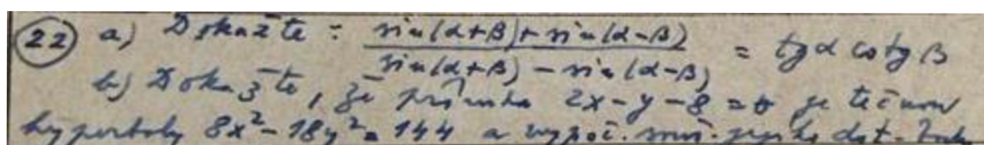 22 a) Dokažte: sin(α+β)+sin(α-β) / sin(α+β)-sin(α-β) = tgα cotgβ
b) Dokažte, že přímka 2x-y-8=0 je tečnou
hyperboly 8x²-18y²=144 a vypoč. souř. jejího dot. bodu